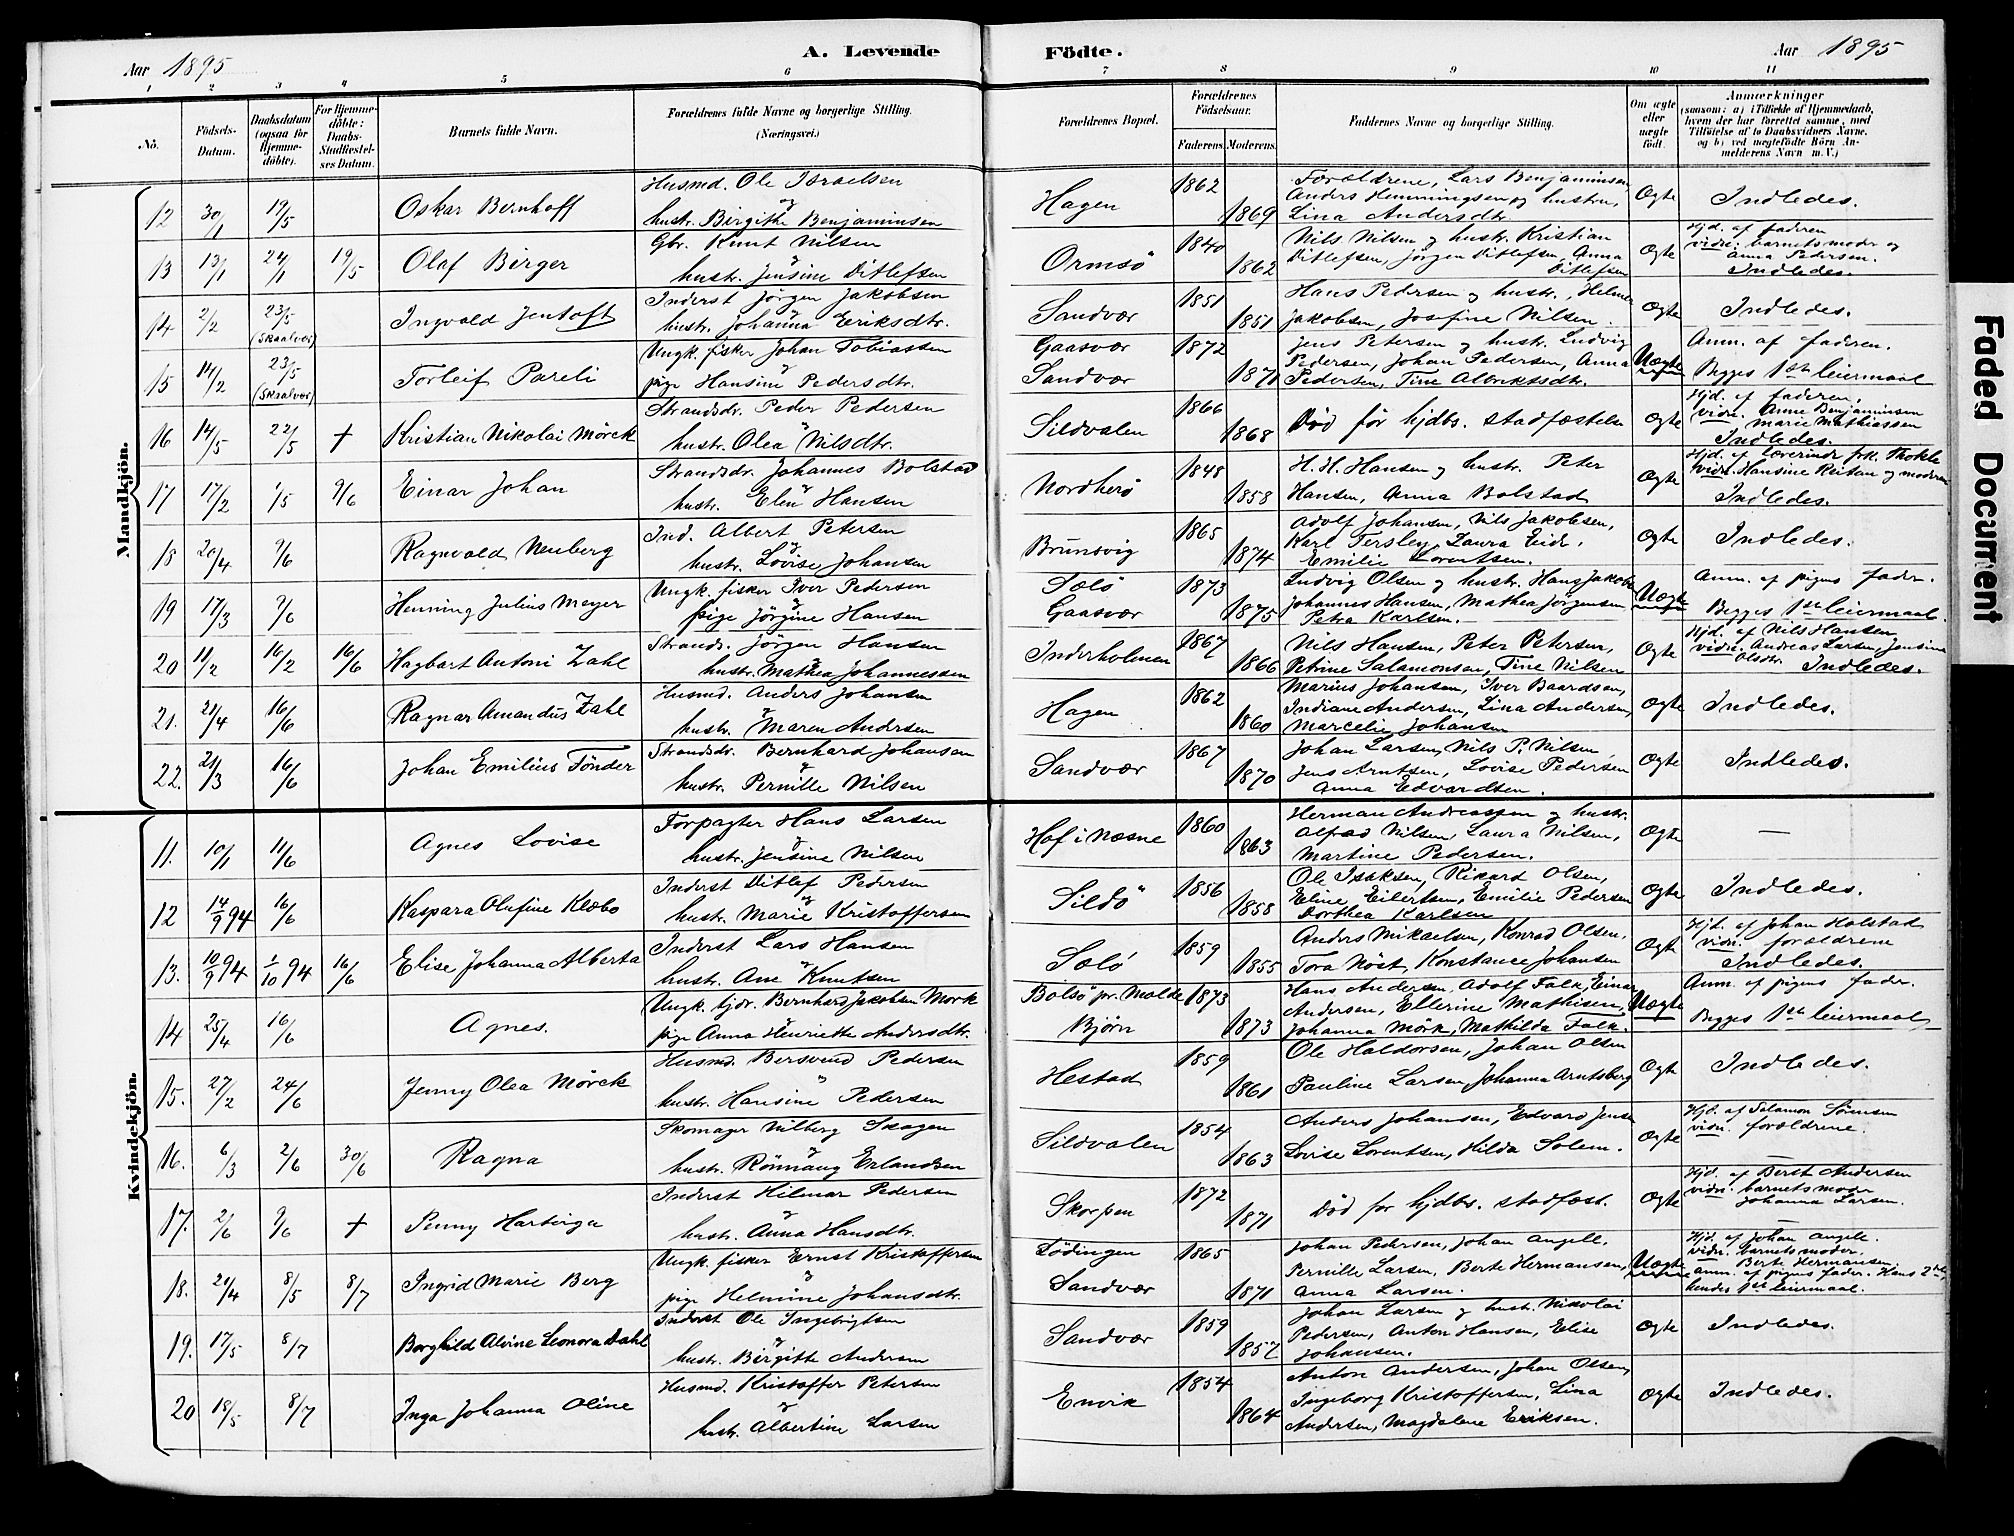 A. Levende Födte.
Aar 1895
Aar 1895
1 2 3 4 5 6 7 8 9 10 11
No.
Födsels-Datum.
Daabsdatum (ogsaa for Hjemme-döbte).
For Hjemme-döbte: Daabs-Stadfæstel-ses Datum.
Barnets fulde Navn.
Forældrenes fulde Navne og borgerlige Stilling. (Næringsvei.)
Forældrenes Bopæl.
Forældrenes Födselsaar.
Faderens. Moderens.
Faddernes Navne og borgerlige Stilling.
Om ægte eller uægte födt.
Anmærkninger
(saasom: a) i Tilfælde af Hjemmedaab, hvem der har forrettet samme, med Tilföielse af to Daabsvidners Navne, og b) ved uægtefödte Börn An-melderens Navn m. V.)
Mandkjön.
12 30/1 19/5 Oskar Bernhoff Husmd. Ole Israelsen og hustr. Birgithe Benjaminsen Hagen 1862 1869 Forældrene, Lars Benjaminsen, Anders Hemmingsen og hustru, Lina Andersdtr. Ægte Indledes.
13 13/1 24/1 19/5 Olaf Birger Gbr. Knut Nilsen og hustr. Jensine Ditlefsen Ormsö 1840 1862 Nils Nilsen og hustr. Kristian Ditlefsen, Jörgen Ditlefsen, Anna Ditlefsen Ægte Hjd. af faderen vidn. barnets moder og Anna Pedersen. Indledes.
14 2/2 23/5 (Skaalvær) Ingvald Jentoft Inderst Jörgen Jakobsen og hustr. Johanna Eriksdtr. Sandvær 1851 1851 Hans Pedersen og hustr., Helmer Jakobsen, Josefine Nilsen. Ægte Indledes.
15 14/2 23/5 (Skaalvær) Torleif Pareli Ungk. fisker Johan Tobiassen og pige Hansine Pedersdtr. Gaasvær Sandvær 1872 1871 Jens Petersen og hustr. Ludvig Pedersen, Johan Pedersen, Anna Pedersen, Tine Albriktsdtr. Uægte Anm. af faderen. Begges 1ste leiermaal
16 14/5 22/5 + Kristian Nikolai Mörck Strandsdr. Peder Pedersen og hustr. Olea Nilsdtr. Sildvalen 1866 1868 Död för hjdbs. stadfæstelse Ægte Hjd. af faderen, vidn. Anne Benjaminsen, Marie Mathiassen Indledes.
17 17/2 1/5 9/6 Einar Johan Strandsdr. Johannes Bolstad og hustr. Elen Hansen Nordherö 1848 1858 H. H. Hansen og hustr. Peter Hansen, Anna Bolstad Ægte Hjd. af lærerinde frk. Thokle vidn. Hansine Reitan og moderen Indledes.
18 20/4 9/6 Ragnvald Neuberg Ind. Albert Petersen og hustr. Lövise Johansen Brunsvig 1865 1874 Adolf Johansen, Nils Jakobsen, Karl Tersley, Laura Eide, Emilie Lorentsen. Ægte Indledes.
19 17/3 9/6 Henning Julius Meyer Ungk. fisker Iver Pedersen og pige Jörgine Hansen Sælö Gaasvær 1873 1875 Ludvig Olsen og hustr. Hans Jakobsen Johannes Hansen, Mathea Jörgensen Petra Karlsen. Uægte Anm. af pigens fader. Begges 1ste leiermaal.
20 11/2 16/2 16/6 Hagbart Antoni Zahl Strands. Jörgen Hansen og hustr. Mathea Johannessen Inderholmen 1867 1866 Nils Hansen, Peter Petersen, Petrine Salamonsen, Tine Nilsen Ægte Hjd. af Nils Hansen, vidn. Andreas Larsen, Jensine Olsdtr. Indledes.
21. 21/4 16/6 Ragnar Amandus Zahl Husmd. Anders Johansen og hustr. Maren Andersen Hagen 1862 1860 Marius Johansen, Iver Baardsen, Indiane Andersen, Lina Andersen, Marcelie Johansen Ægte Indledes.
22. 21/3 16/6 Johan Emilius Tönder Strandsdr. Bernhard Johansen og hustr. Pernille Nilsen Sandvær 1867 1870 Johan Larsen, Nils P. Nilsen Jens Arntsen, Lovise Pedersen Anna Edvardsen. Ægte Indledes.
Kvindekjön.
11. 10/1 11/6 Agnes Lovise Forpagter Hans Larsen og hustr. Jensine Nilsen Hof i Næsne 1860 1863 Herman Andreassen og hustr. Alfred Nilsen, Laura Nilsen, Martine Pedersen. Ægte —
12 14/9 94 16/6 Kaspara Olufine Klæbo Inderst Ditlef Pedersen og hustr. Marie Kristoffersen Sildö 1856 1858 Ole Isaksen, Rikard Olsen, Eline Eilertsen, Emilie Pedersen Dorthea Karlsen Ægte Indledes.
13. 10/9 94 1/10 94 16/6 Elise Johanna Alberta Inderst Lars Hansen og hustr. Ane Knutsen Sælö 1859 1855 Anders Mikaelsen, Konrad Olsen, Tora Nöst, Konstance Johansen Ægte Hjd. af Johan Holstad vidn. forældrene Indledes.
14 25/4 16/6 Agnes. Ungk. tjdr. Bernhard Jakobsen Mork og pige Anna Henriette Andersdtr. Bolsö pr. Molde Björn 1873 1873 Hans Andersen, Adolf Falk, Einar Andersen, Ellerine Mathisen, Johanna Mörk, Mathilda Falk. Uægte Anm. af pigens fader. Begges 1ste leiermaal
15. 27/2 24/6 Jenny Olea Mörck Husmd. Bersvend Pedersen og hustr. Hansine Pedersen Hestad 1859 1861 Ole Haldorsen, Johan Olsen Pauline Larsen, Johanna Arntsberg Ægte Indledes.
16. 6/3 2/6 30/6 Ragna Skomager Vilberg Skogen og hustr. Rönnaug Erlandsen Sildvalen 1854 1863 Anders Johansen, Edvard Jensen Lovise Lorentsen, Hilda Solem. Ægte Hjd. af Salamon Sömsen vidn. forældrene. —
17. 2/6 9/6 + Penny Hartviga Inderst Hilmar Pedersen og hustr. Anna Hansdtr. Skorpen 1872 1871 Död for hjdbs. stadfæst. Ægte Hjd. af Berst Andersen vidn. barnets moder Johanna Larsen. —
18. 20/4 8/5 8/7 Ingrid Marie Berg Ungk. fisker Ernst Kristoffersen og pige Helmine Johansdtr. Lödingen Sandvær 1865 1871 Johan Pedersen, Johan Angell, Pernille Larsen, Berte Hermansen, Anna Larsen. Uægte Hjd. af Johan Angell. vidn. barnets moder, Berte Hermansen anm. af pigens fader. Hans 2det hendes 1ste leiermaal.
19. 17/5 8/7 Borghild Alvine Leonora Dahl Inderst Ole Ingebrigtsen og hustr. Birgitte Andersen Sandvær 1859 1857 Johan Larsen og hust. Nikolai Pedersen, Anton Hansen, Elise Johansen. Ægte Indledes.
20 18/5 8/7 Inga Johanna Oline Husmd. Kristoffer Petersen og hustr. Albertine Larsen Envik 1854 1864 Anton Andersen, Johan Olsen, Ingeborg Kristoffersen, Lina Andersen, Magdalene Eriksen. Ægte Indledes.
Faded Document